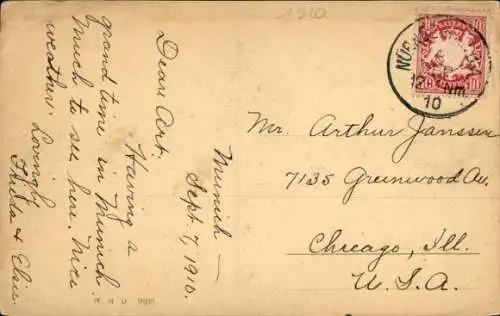 1910
Munich —
Sept. 7, 1910.
Dear Art:
Having a
grand time in Munich.
Much to see here. Nice
weather. Lovingly
Thilda & Elsa
Mr. Arthur Janssen
7135 Greenwood Av.
Chicago, Ill.
U. S. A.
BAYERN
10 10
12
Nm.
10